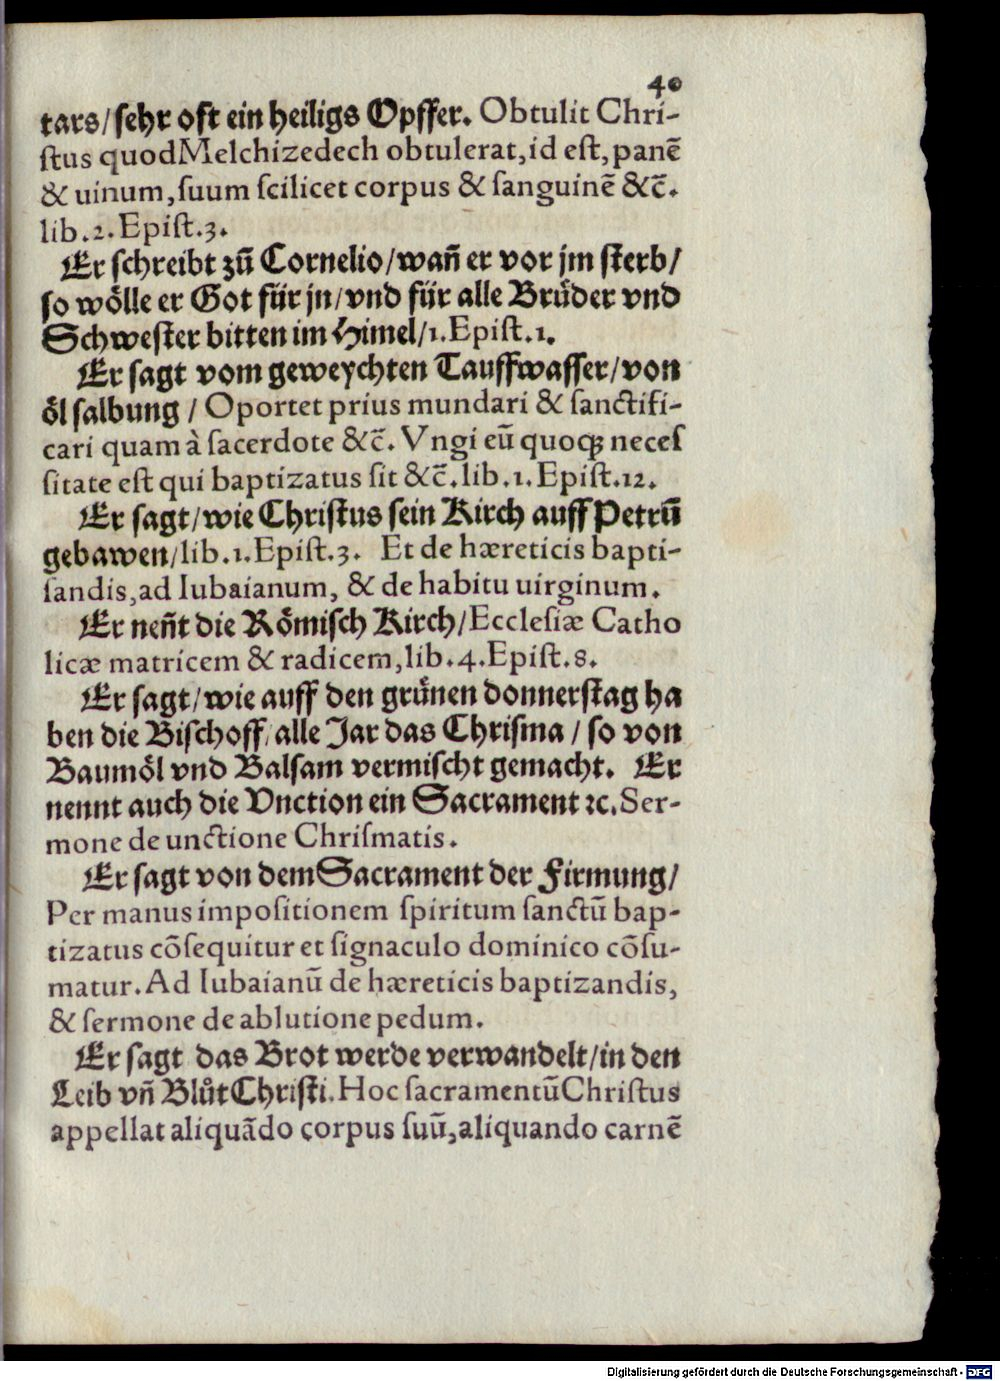 40
tars/sehr oft ein heiligs Opffer. Obtulit Chri-
stus quod Melchizedech obtulerat, id est, panē
& uinum, suum scilicet corpus & sanguinē &c̄.
lib.2.Epist.3.
Er schreibt zū Cornelio/wañ er vor jm sterb/
so woͤlle er Got für jn/vnd für alle Bruͤder vnd
Schwester bitten im Himel/1.Epist.1.
Er sagt vom geweychten Tauffwasser/von
oͤl salbung / Oportet prius mundari & sanctifi-
cari quam à sacerdote &c̄. Vngi eū quoqꝫ neces
sitate est qui baptizatus sit &c̄.lib.1.Epist.12.
Er sagt/wie Christus sein Kirch auff Petrū
gebawen/lib.1.Epist.3. Et de hæreticis bapti-
sandis, ad Iubaianum, & de habitu uirginum.
Er neñt die Roͤmisch Kirch/Ecclesiæ Catho
licæ matricem & radicem, lib.4.Epist.8.
Er sagt/wie auff den gruͤnen donnerstag ha
ben die Bischoff/alle Jar das Chrisma / so von
Baumoͤl vnd Balsam vermischt gemacht. Er
nennt auch die Vnction ein Sacrament ⁊c. Ser-
mone de unctione Chrismatis.
Er sagt von dem Sacrament der Firmung/
Per manus impositionem spiritum sanctū bap-
tizatus cōsequitur et signaculo dominico cōsu-
matur. Ad Iubaianū de hæreticis baptizandis,
& sermone de ablutione pedum.
Er sagt das Brot werde verwandelt/in den
Leib vñ Blůt Christi. Hoc sacramentū Christus
appellat aliquādo corpus suū, aliquando carnē
Digitalisierung gefördert durch die Deutsche Forschungsgemeinschaft - DFG